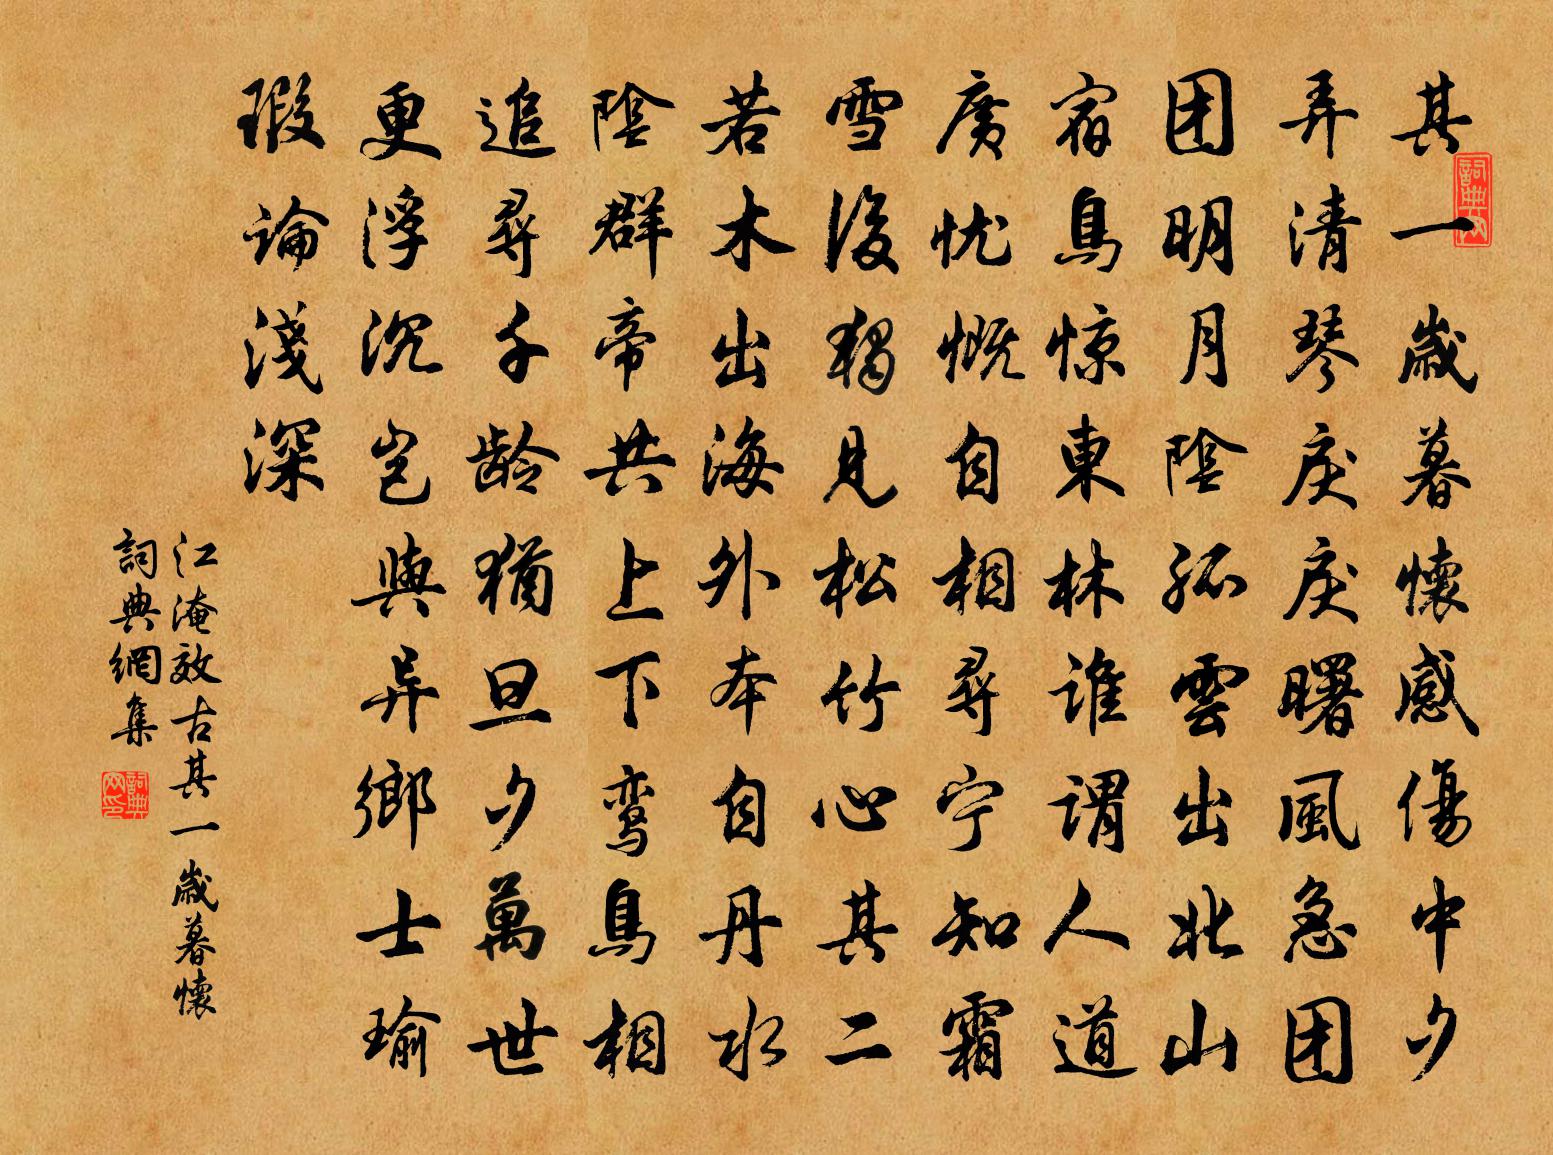 其一歲暮懷感傷中夕
弄清琴戾戾曙風急团
团明月陰孤雲出北山
宿鳥惊東林誰謂人道
廣忧慨自相尋宁知霜
雪後獨見松竹心其二
若木出海外本自丹水
陰群帝共上下鸾鳥相
追尋千龄猶旦夕萬世
更浮沉岂與异鄉士瑜
瑕論淺深
江淹效古其一歲暮懷
詞典網集
詞典网
詞典网印